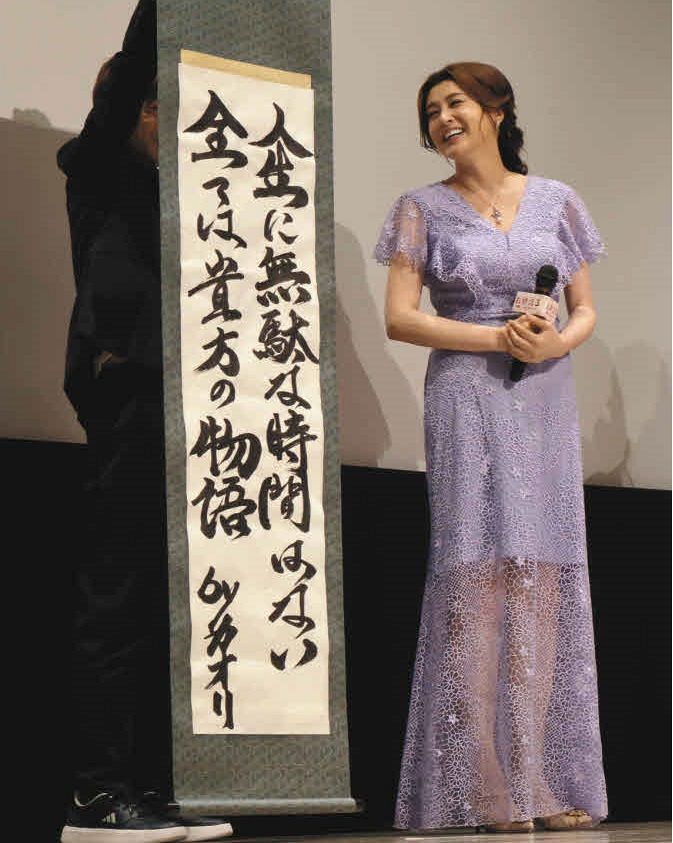 人生に無駄な時間はない
全ては貴方の物語 byカオリ